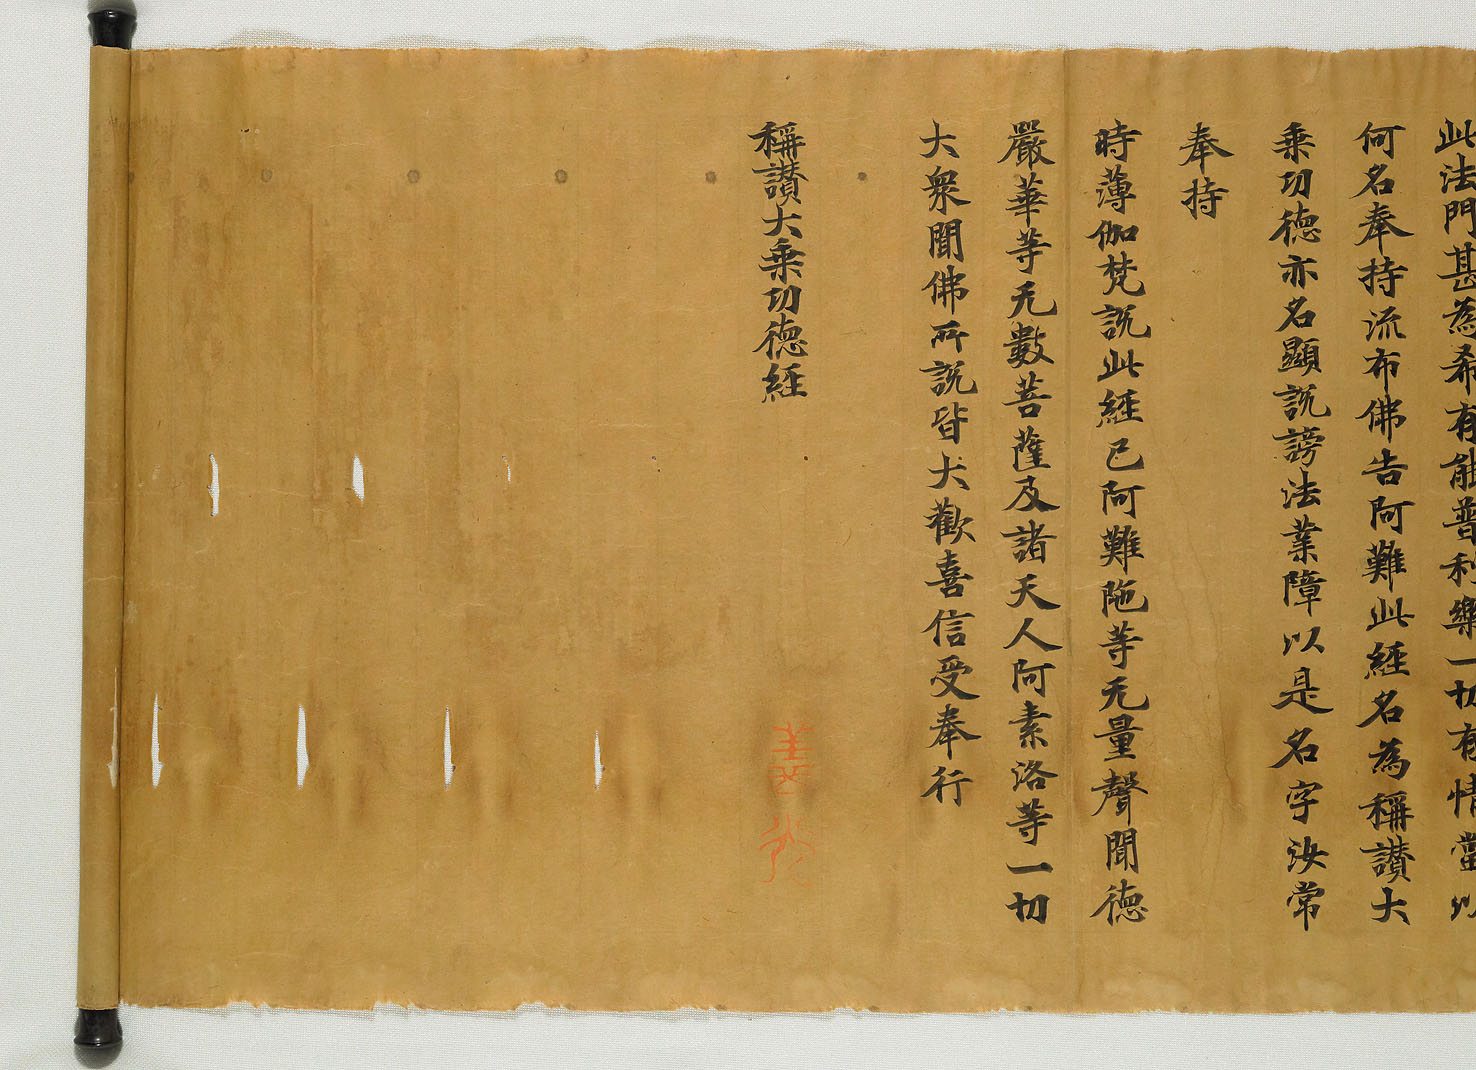 此法門甚為希有能普利樂一切有情當以
何名奉持流布佛告阿難此經名為稱讚大
乘功德亦名顯說謗法業障以是名字汝常
奉持
時薄伽梵說此經已阿難陁等无量聲聞德
嚴華等无數菩薩及諸天人阿素洛等一切
大衆聞佛所說皆大歡喜信受奉行
稱讚大乘功德經